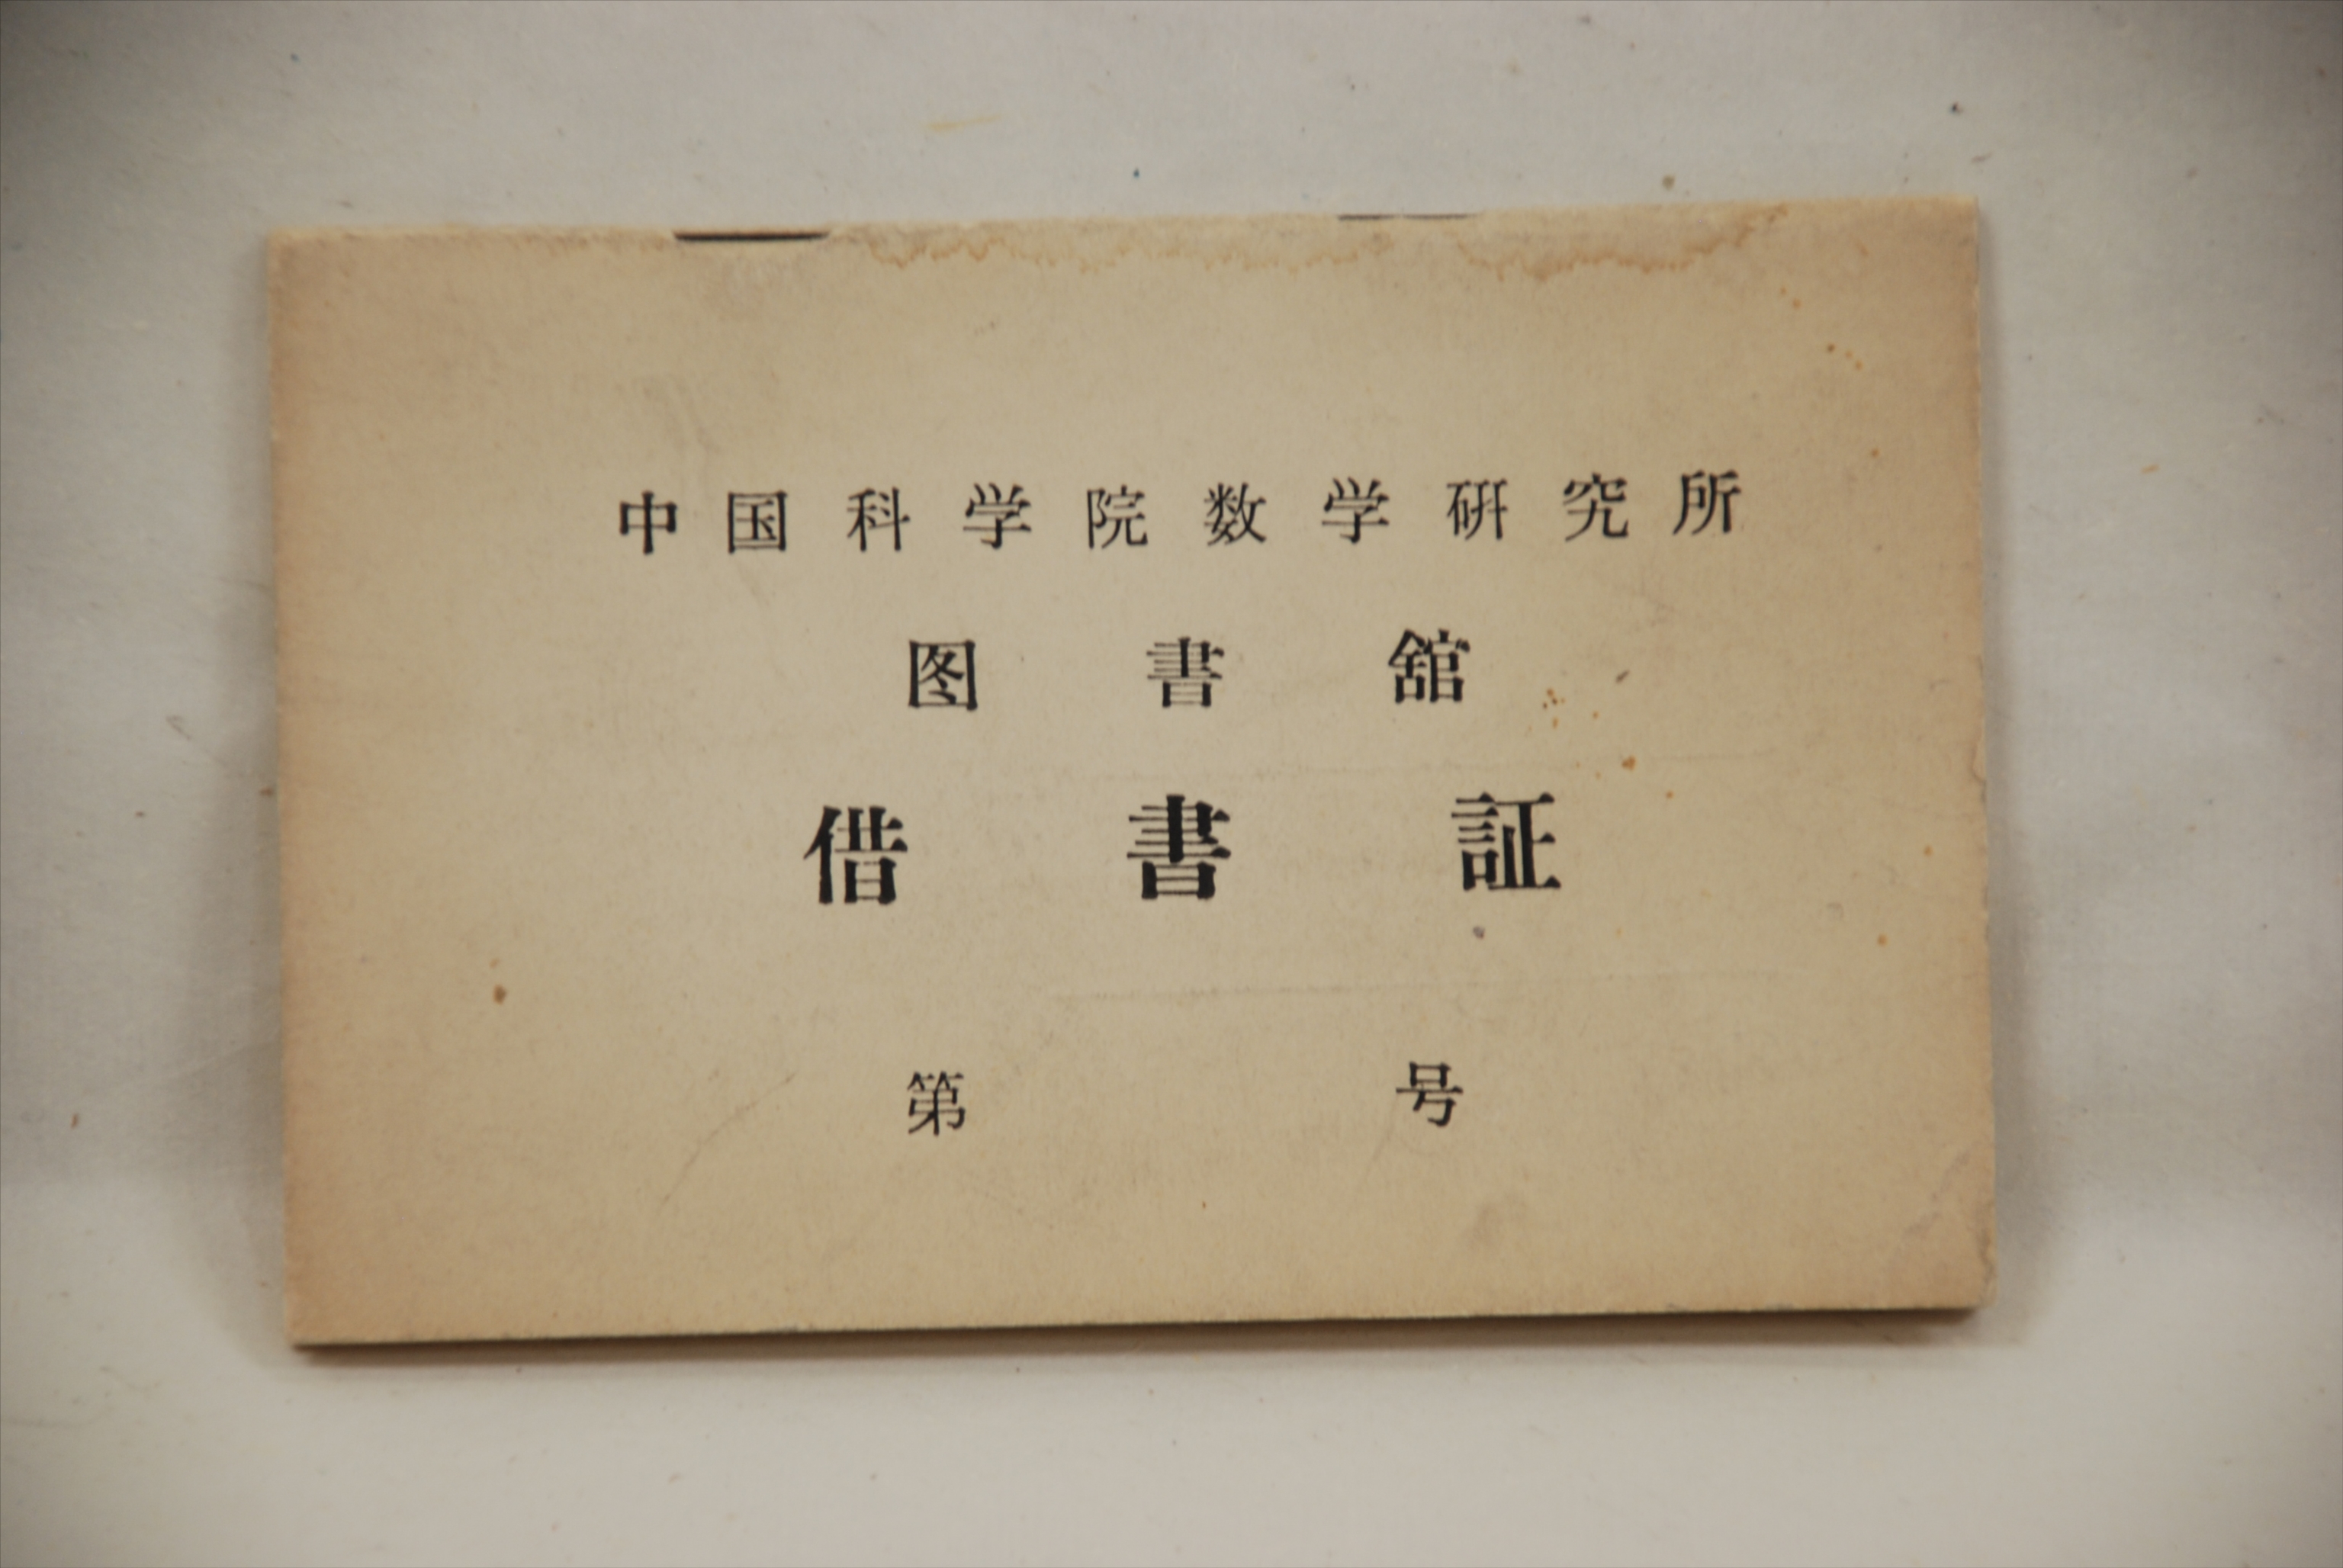 中国科学院数学研究所
图書舘
借書証
第 号